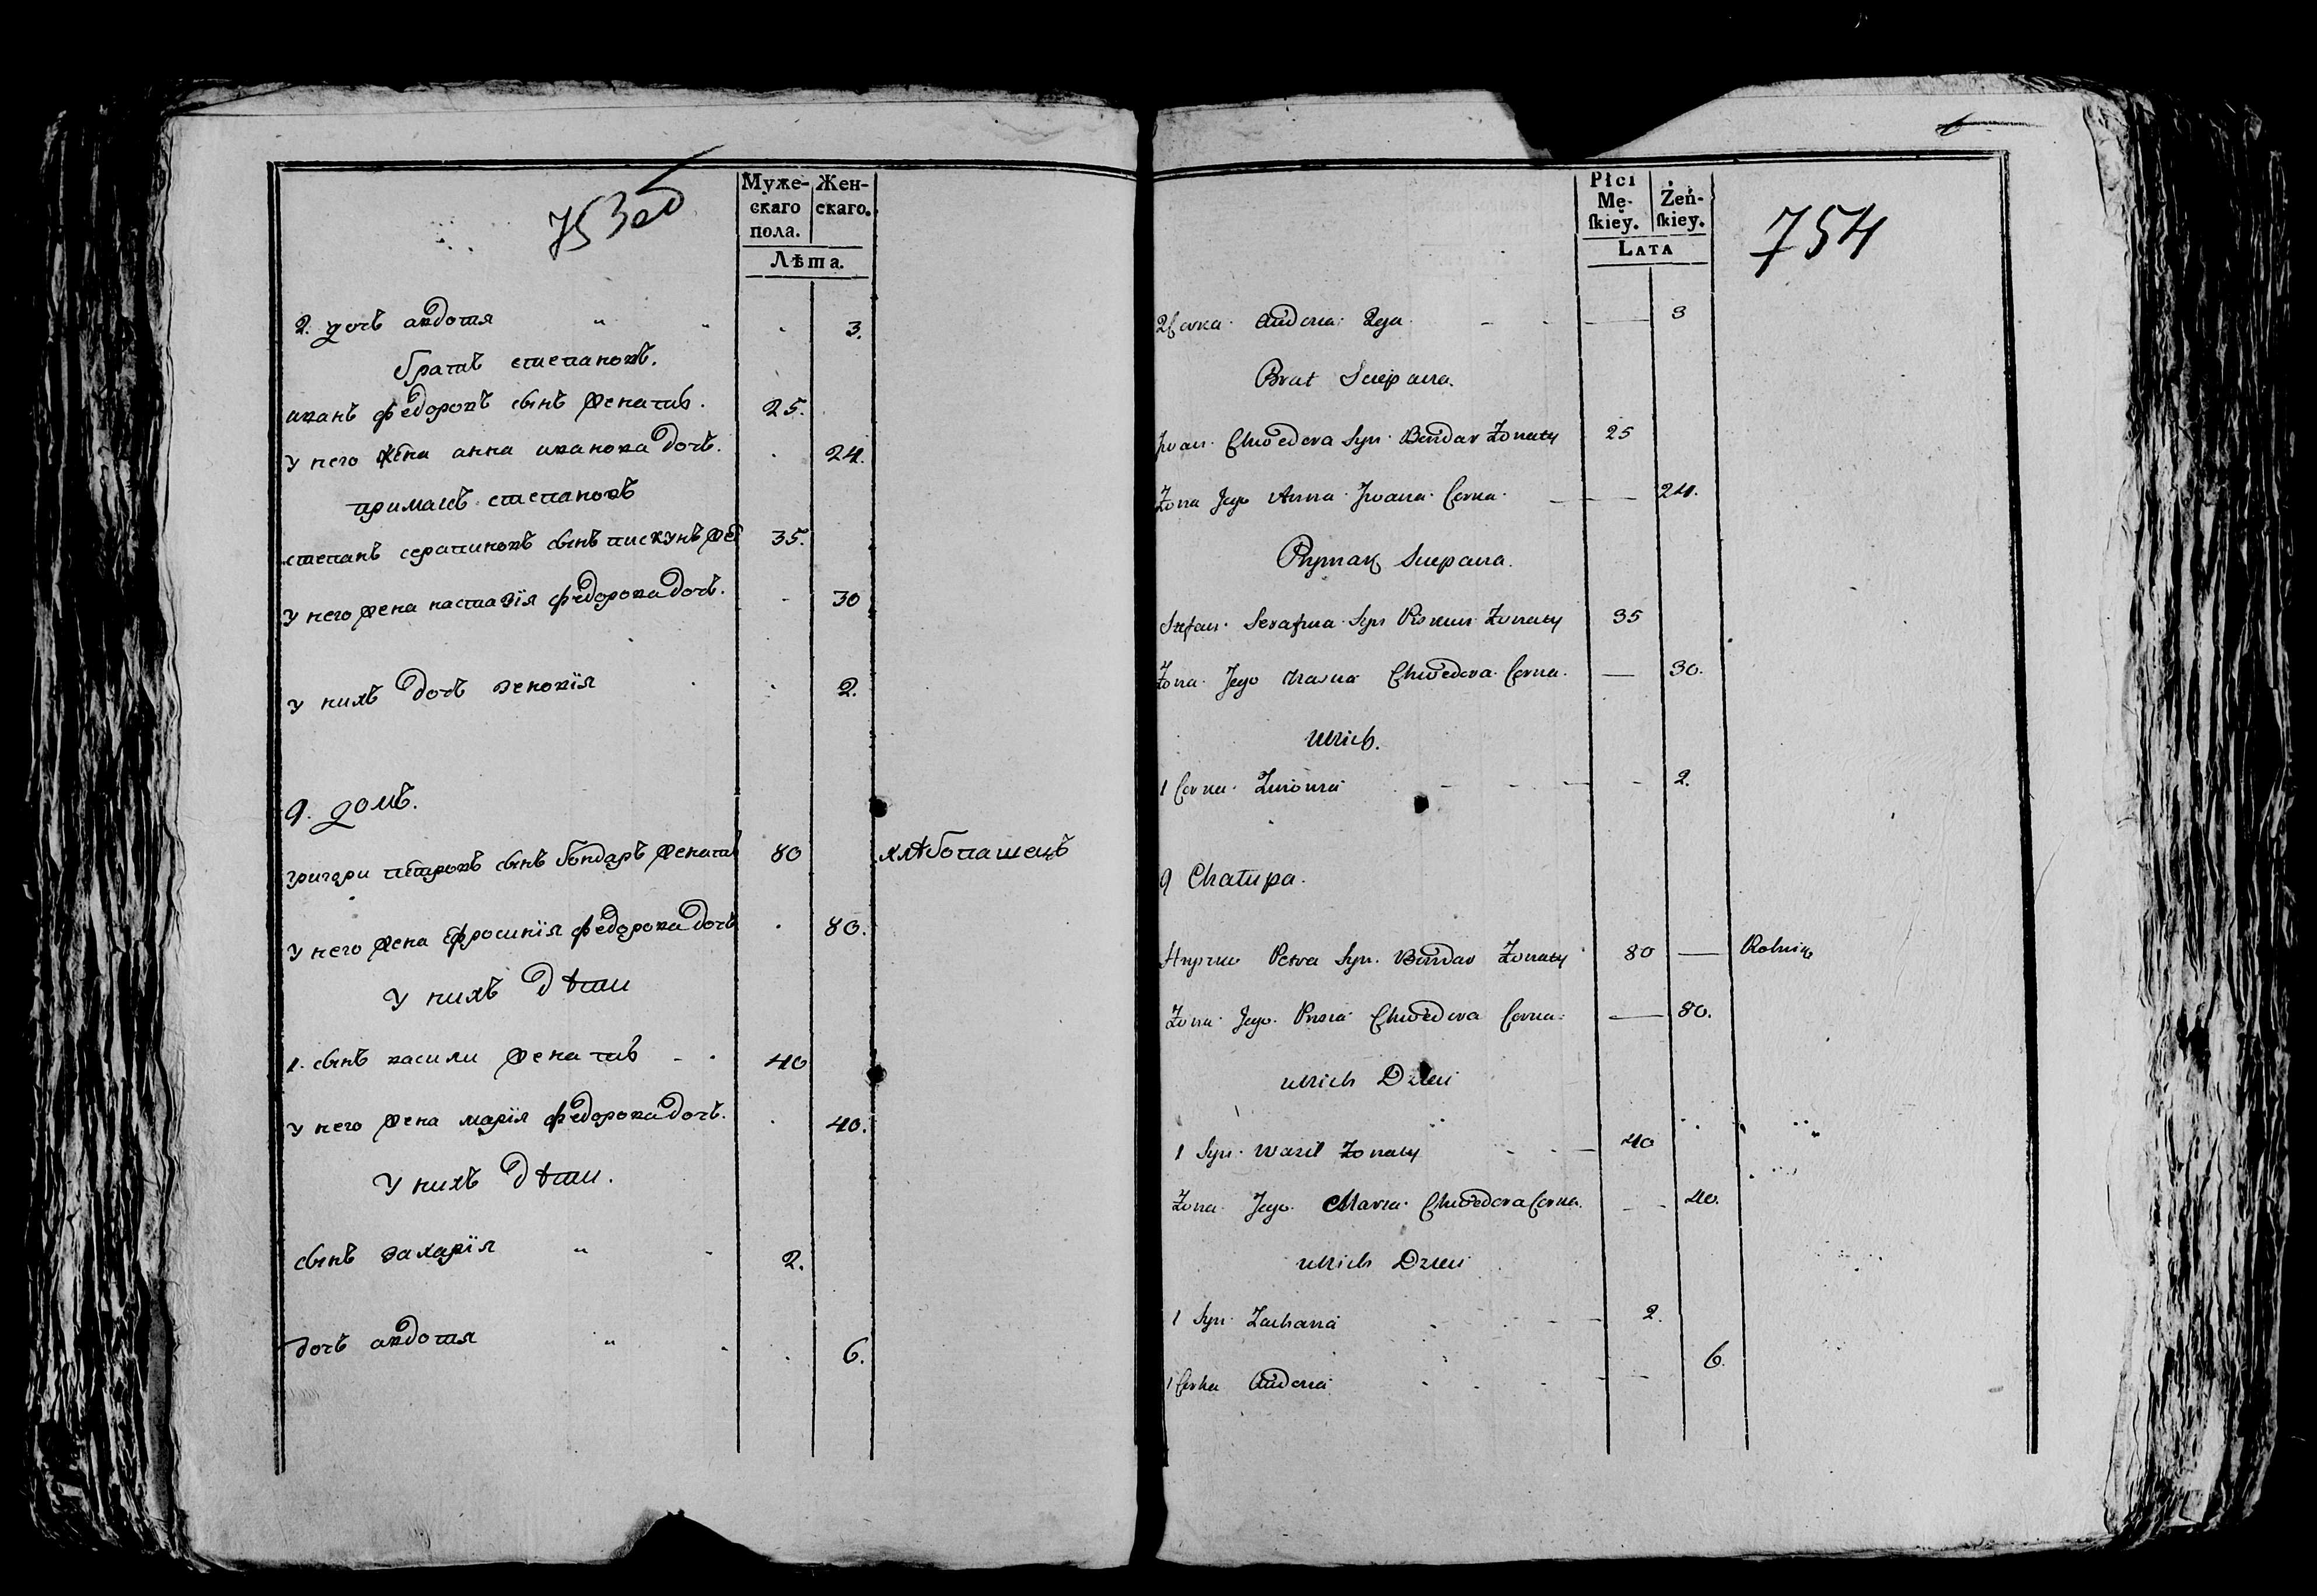 753об
Муже- Жен-
скаго скаго.
пола.
Лѣта.
2. дочь авдотя " " . 3.
братъ степановъ.
иванъ федоровъ сынъ женатъ. 25.
у него жена анна иванова дочь. . 24.
примакъ степановъ
степанъ серапиновъ сынъ пискунъ же 35.
у него жена настазія федорова дочь. - 30
у нихъ дочь зеновія . . 2.
9. домъ.
григори петровъ сынъ бондаръ женатъ 80 хлѣбопашецъ
у него жена ефросинія федорова дочь . 80.
у нихъ дѣти
1. сынъ васили женатъ - . 40
у него жена марія федорова дочь. . 40.
у нихъ дѣти.
сынъ захарія " - 2.
дочь авдотя " . . 6.
754
Płci
Mę- Żeń-
ſkiey. ſkiey.
LATA
2 Corka Audocia 3
Brat Sciepana.
Jwan Chwedora Syn Bondar Żonaty 25
Żona Jego Anna Jwana Corka. — — 24.
Prymak Sciepana.
Stefan Serafina Syn Piskun Żonaty 35
Żona Jego Nasta Chwedora Corka. — 30.
U Nich.
1 Corka Zinowia - - - — - 2.
9 Chałupa.
Hryhor Petra Syn. Bondar Żonaty 80 — Rolnik
Żona Jego Prosia Chwedora Corka — 80.
u Nich Dzieci
1 Syn Wasil Żonaty - - — 40
Żona Jego Maria Chwedora Corka. - - 40.
u Nich Dzieci
1 Syn Zacharia - - - — 2.
1 Corka Audocia - - - - — 6.